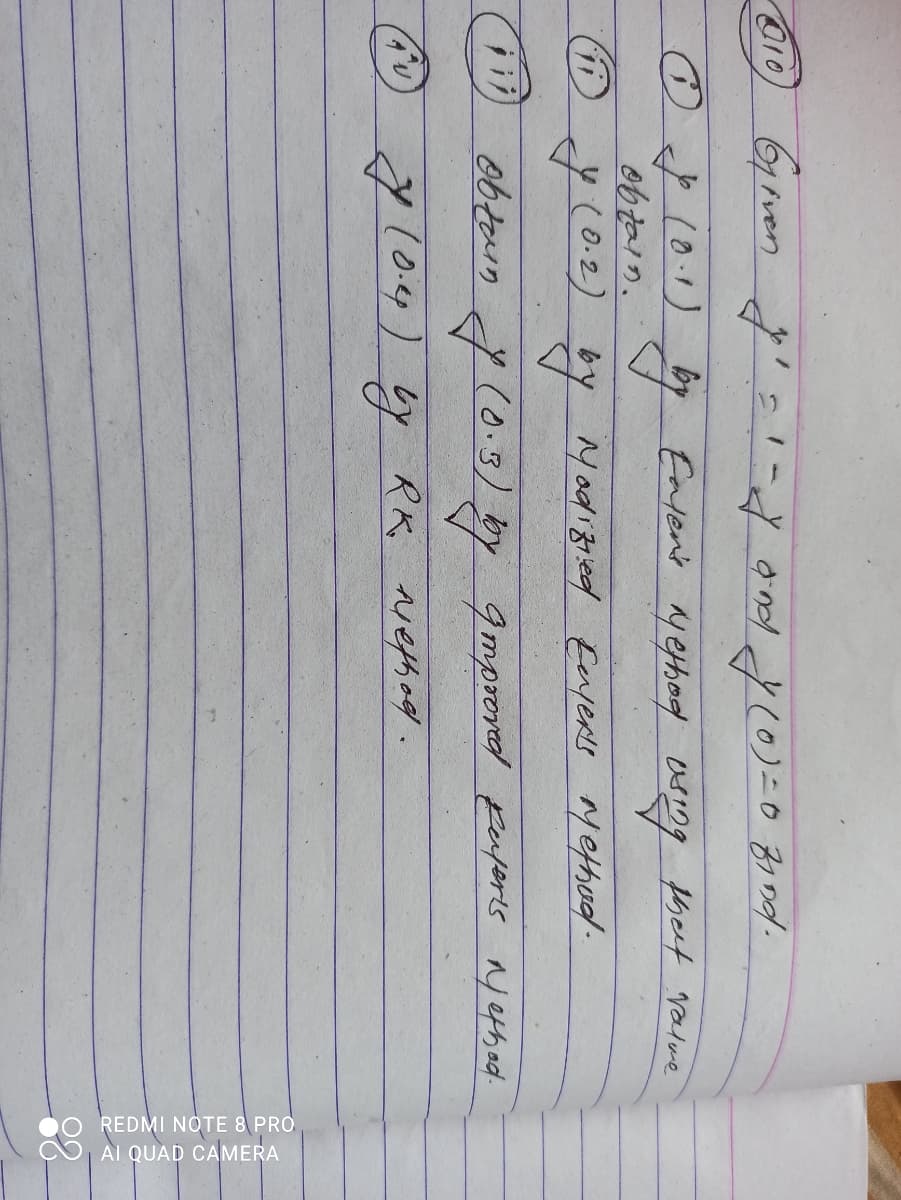 Q10 Given y' = 1 - y and y(0) = 0 find.
i y(0.1) by Euler's Method using that value
obtain.
ii y(0.2) by Modified Euler's Method.
iii obtain y(0.3) by Improved Euler's Method.
iv y(0.4) by RK. Method.
REDMI NOTE 8 PRO
AI QUAD CAMERA